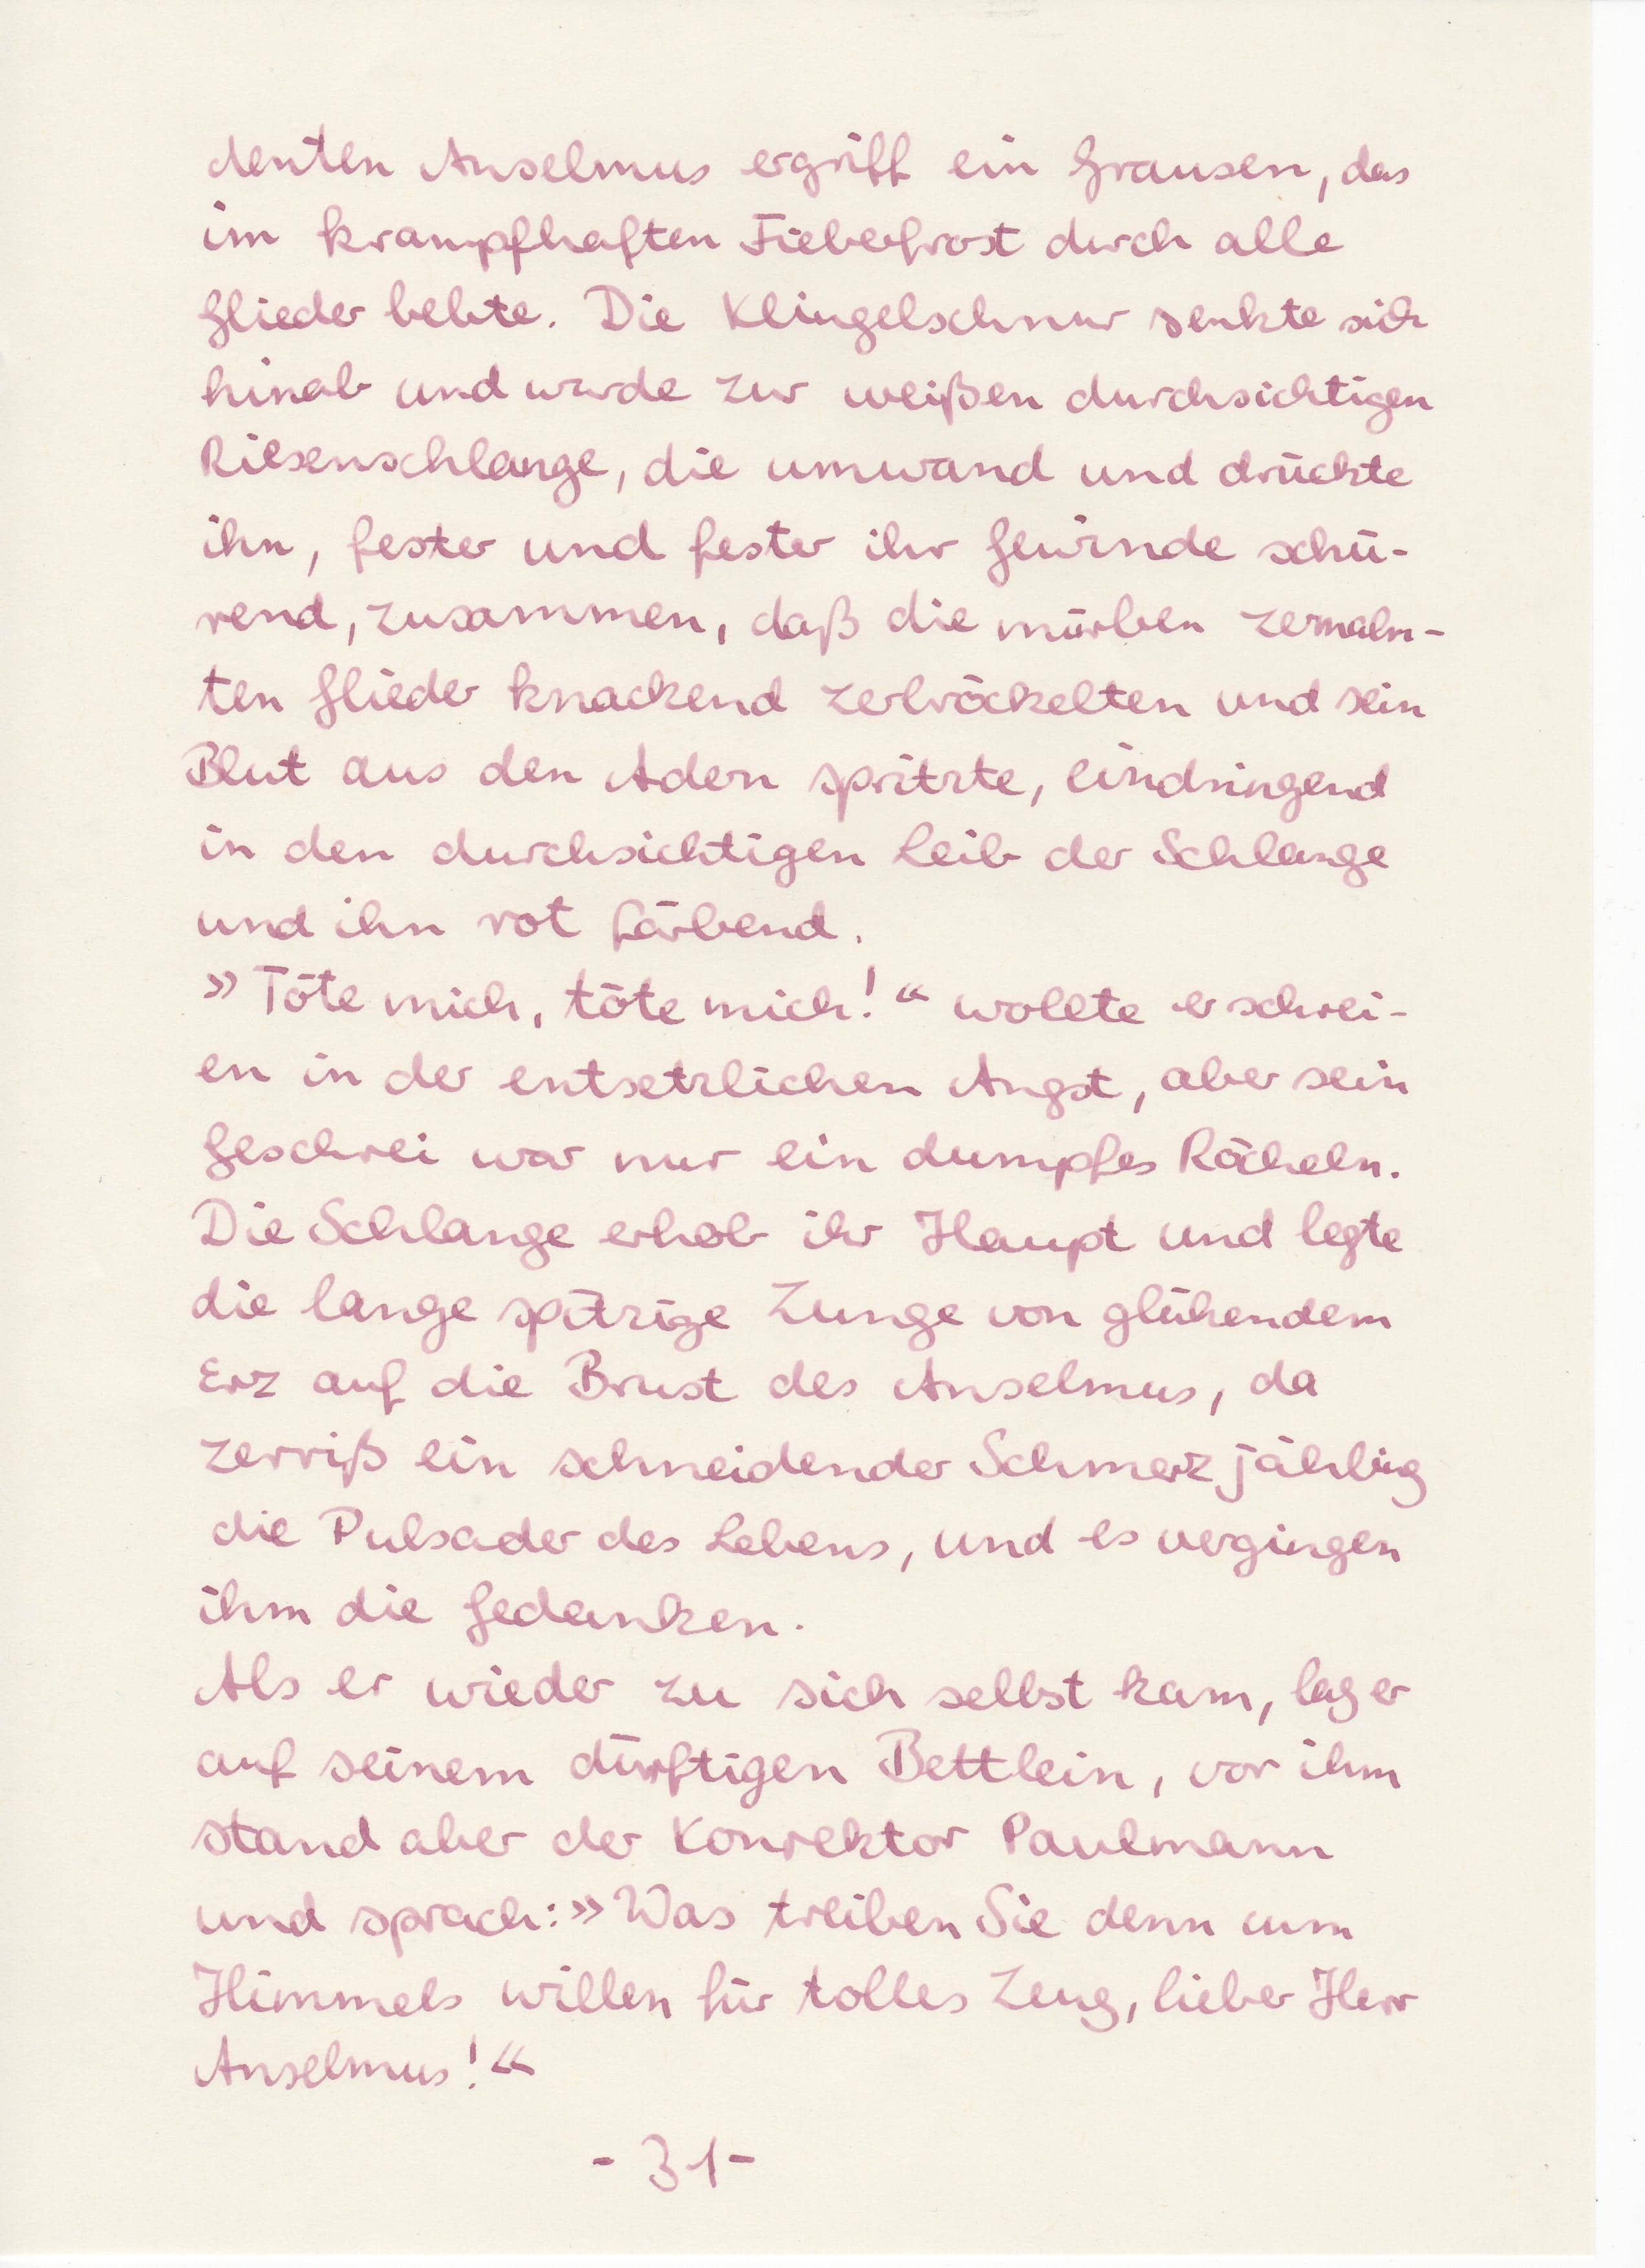 denten Anselmus ergriff ein Grausen, das
im krampfhaften Fieberfrost durch alle
Glieder bebte. Die Klingelschnur senkte sich
hinab und wurde zur weißen durchsichtigen
Riesenschlange, die umwand und drückte
ihn, fester und fester ihr Gewinde schü-
rend, zusammen, daß die mürben zermalm-
ten Glieder knackend zerbröckelten und sein
Blut aus den Adern spritzte, eindringend
in den durchsichtigen Leib der Schlange
und ihn rot färbend.
»Töte mich, töte mich!“ wollte er schrei-
en in der entsetzlichen Angst, aber sein
Geschrei war nur ein dumpfes Röcheln.
Die Schlange erhob ihr Haupt und legte
die lange spitzige Zunge von glühendem
Erz auf die Brust des Anselmus, da
zerriß ein schneidender Schmerz jähling
die Pulsader des Lebens, und es vergingen
ihm die Gedanken.
Als er wieder zu sich selbst kam, lag er
auf seinem dürftigen Bettlein, vor ihm
stand aber der Konrektor Paulmann
und sprach: »Was treiben Sie denn um
Himmels willen für tolles Zeug, lieber Herr
Anselmus!“
- 31 -